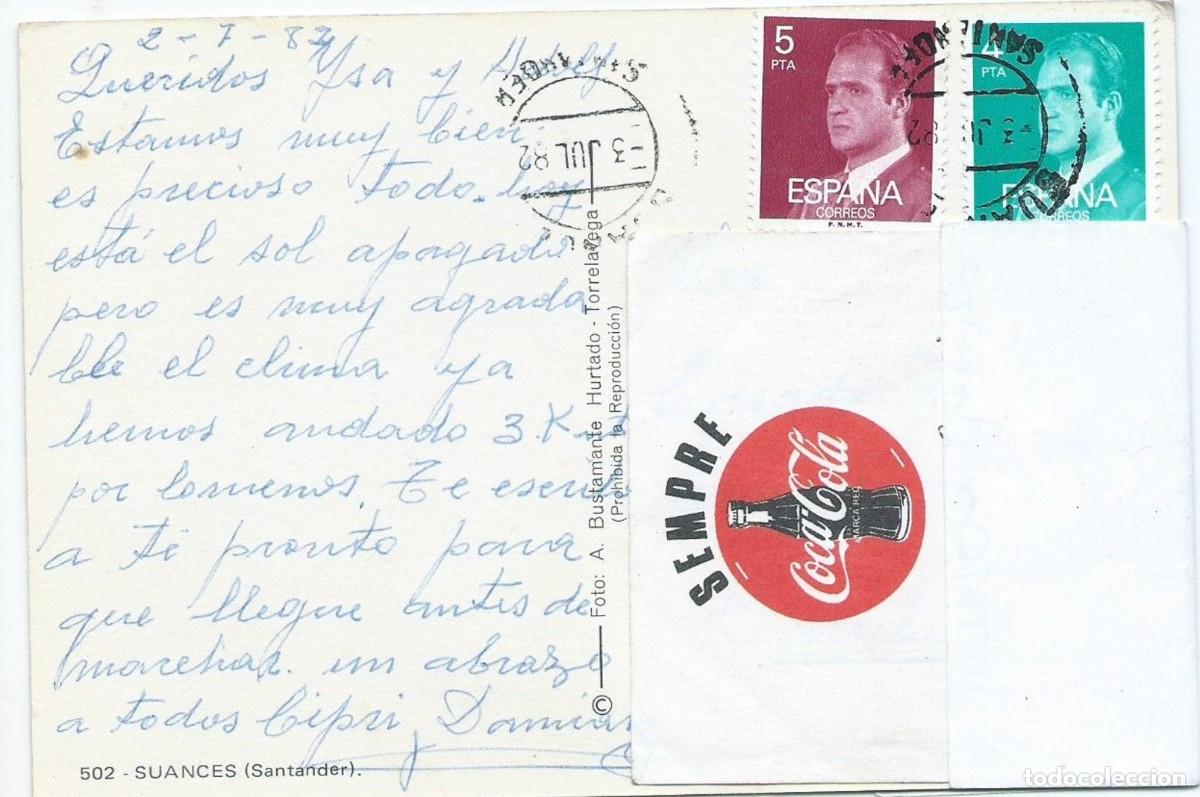 2-7-82
Queridos Ysa y
Estamos muy bien
es precioso todo. hoy
está el sol apagado
pero es muy agrada
ble el clima ya
hemos andado 3. K
por lomenos. Te
a ti pronto para
que llegue antes de
marchar. un abrazo
a todos Cipri Damián
502 - SUANCES (Santander).
© Foto: A. Bustamante Hurtado - Torrelavega
(Prohibida la Reproducción)
SANTANDER
-3 JUL 82
5
PTA
ESPAÑA
CORREOS
F.N.M.T.
SANTANDER
-3 JUL 82
4
PTA
ESPAÑA
CORREOS
SEMPRE
Coca-Cola
MARCA REG
todocoleccion